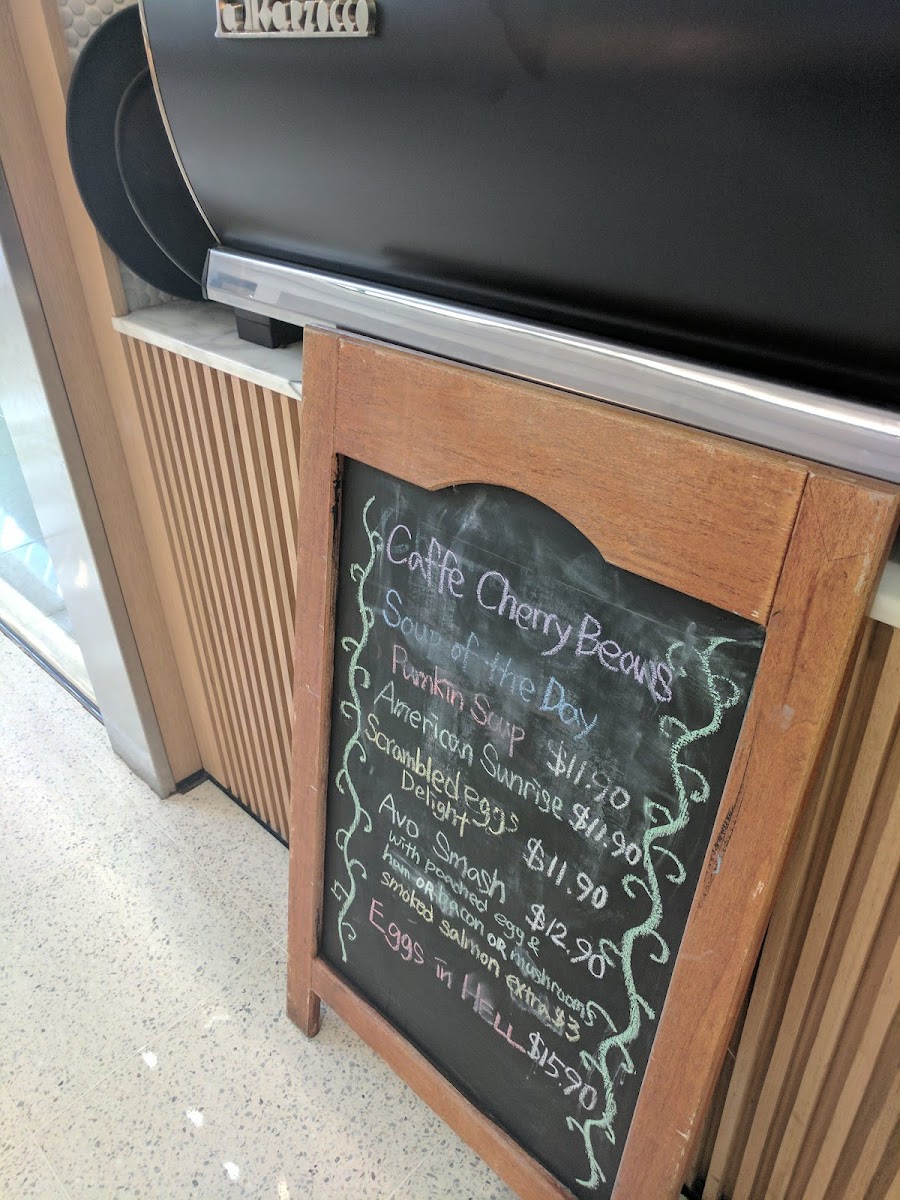 Caffe Cherry Beans
Soup of the Day
Pumkin Soup $11.90
American Sunrise $11.90
Scrambled eggs
Delight $11.90
Avo Smash $12.90
with poached egg &
ham OR bacon OR mushrooms
smoked salmon extra $3
Eggs in HELL $15.90